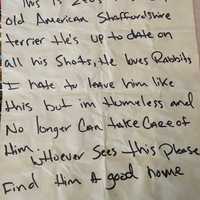 This is
old American Staffordshire
terrier He's up to date on
all his shots, He loves Rabbits
I hate to leave him like
this but im Homeless and
No longer Can take Care of
Him. Whoever Sees this Please
Find Him A good home